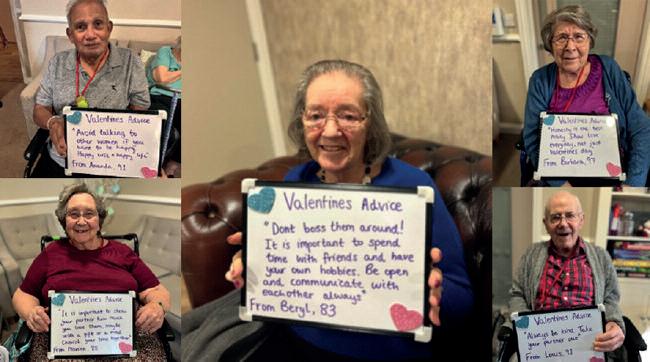 Valentines Advice
"Avoid talking to
other women if you
want to be happy.
Happy wife = happy life"
From Ananda, 91
Valentines Advice
"Dont boss them around!
It is important to spend
time with friends and have
your own hobbies. Be open
and communicate with
eachother always"
From Beryl, 83
Valentines Advice
"Honesty is the best
Policy. Show love
everyday, not just
valentines day"
From Barbara, 97
Valentines Advice
"It is important to show
your partner how much
you love them, maybe
with a gift or a meal
Cherish your time together"
From
Valentines Advice
"Always be kind. Take
your partner out"
From Louis, 93